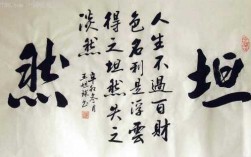 坦
人生不過百財
色名利是浮雲
得之坦然失之
淡然
冬月
然